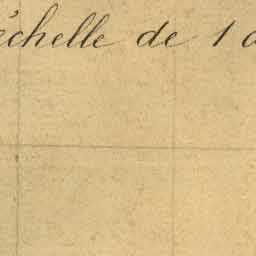 échelle de 1 à